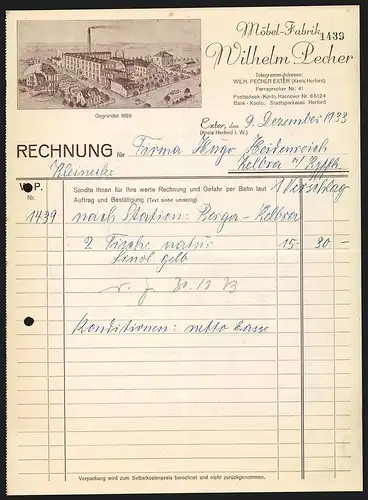 Möbel-Fabrik
1439
Wilhelm Pecher
Telegramm-Adresse:
WILH. PECHER EXTER (Kreis Herford)
Fernsprecher Nr. 41
Postscheck-Konto Hannover Nr. 66124
Bank-Konto: Stadtsparkasse Herford
Gegründet 1889
Exter, den 9. Dezember 1933
(Kreis Herford i. W.)
RECHNUNG für Firma Hugo Heidenreich
Kelbra
Kleineike
V.P.
Nr.
Sandte Ihnen für Ihre werte Rechnung und Gefahr per Bahn laut 1 Verschlag
Auftrag und Bestätigung (Text siehe umseitig)
1439 nach Station: Berga-Kelbra
2 Tische natur 15.- 30 -
Linol. gelb
30.12.33
Konditionen: netto Casse
Verpackung wird zum Selbstkostenpreis berechnet und nicht zurückgenommen.